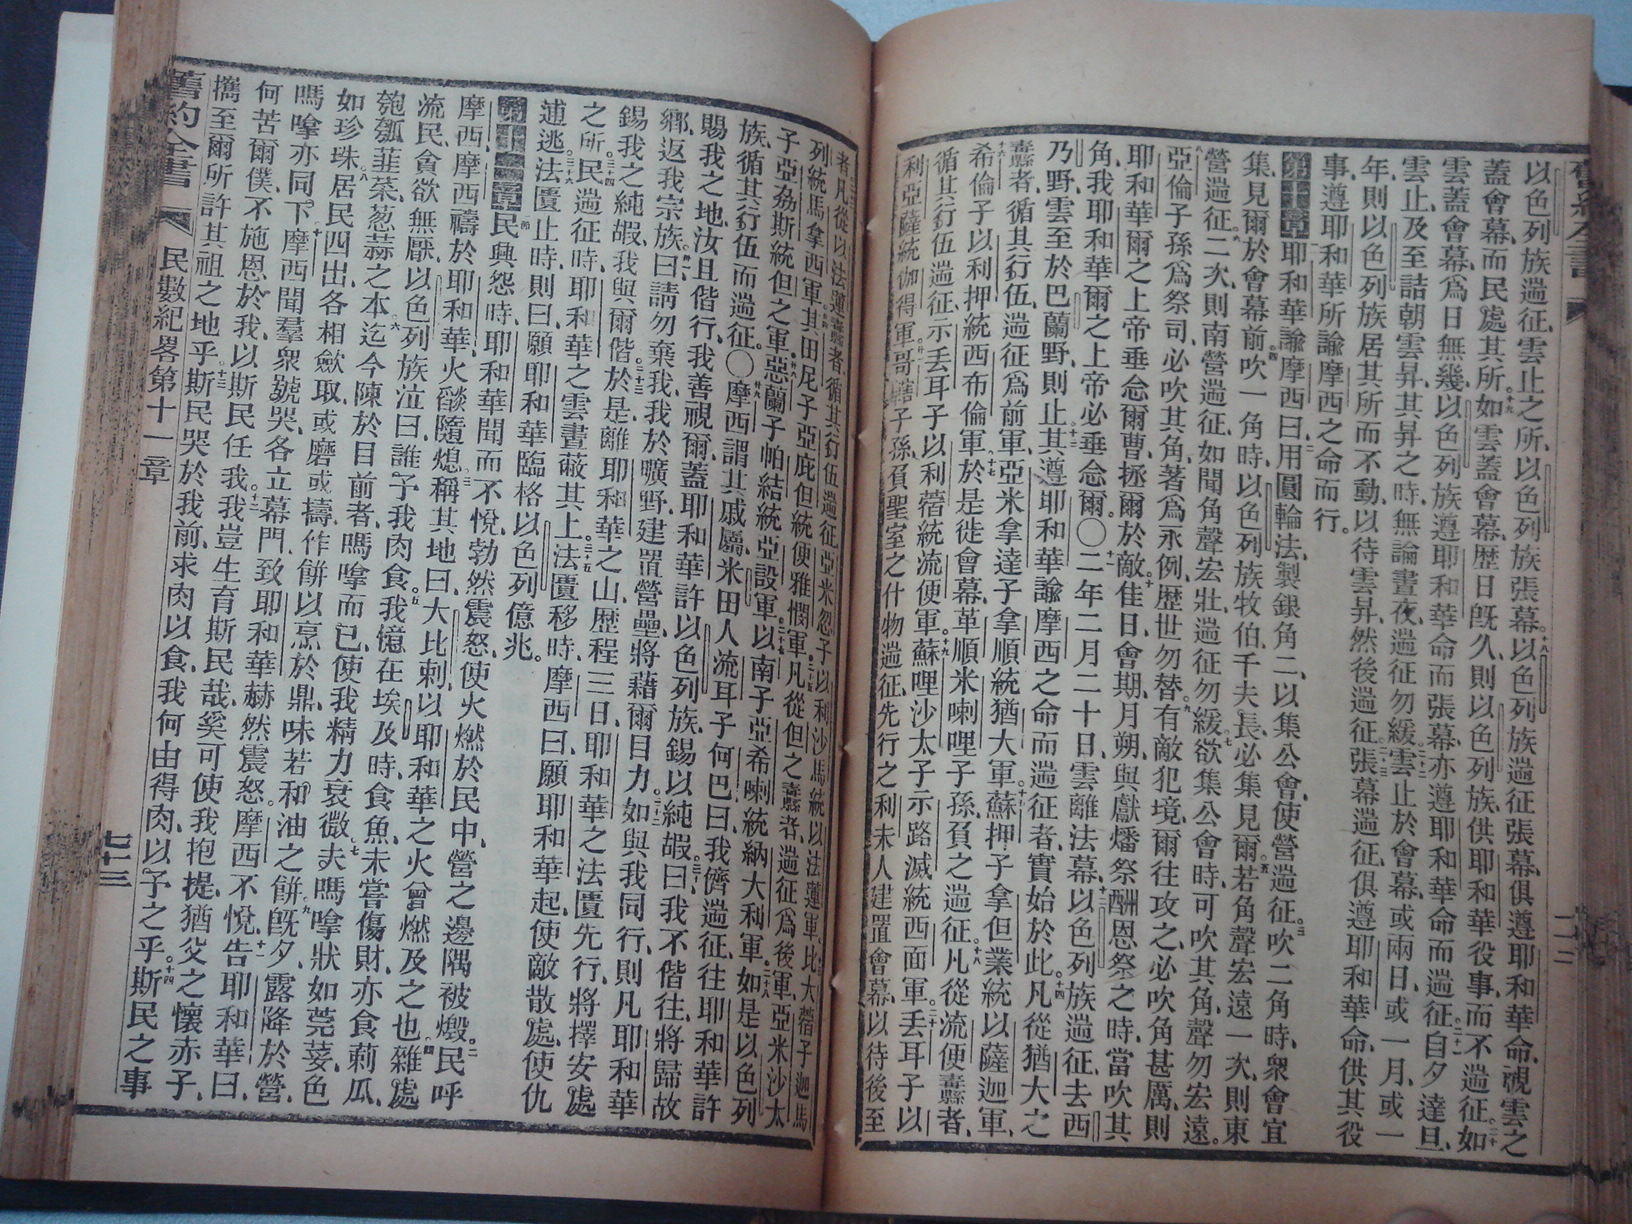 以色列族遄征、雲止之所、以色列族張幕。十八以色列族遄征張幕、俱遵耶和華命、視雲之
蓋會幕、而民處其所。十九如雲蓋會幕、歷日旣久、則以色列族供耶和華役事、而不遄征。二十如
雲蓋會幕、爲日無幾、以色列族遵耶和華命而張幕、亦遵耶和華命而遄征。二十一自夕達旦、
雲止、及至詰朝雲昇、其昇之時、無論晝夜、遄征勿緩。二十二雲止於會幕、或兩日、或一月、或一
年、則以色列族居其所而不動、以待雲昇、然後遄征。二十三張幕遄征、俱遵耶和華命、供其役
事、遵耶和華所諭摩西之命而行。
第十章 耶和華諭摩西曰、二用圓輪法、製銀角二、以集公會、使營遄征。三吹二角時、衆會宜
集、見爾於會幕前。四吹一角時、以色列族牧伯、千夫長、必集見爾。五若角聲宏遠一次、則東
營遄征。六二次、則南營遄征、如聞角聲宏壯、遄征勿緩。七欲集公會時、可吹其角、聲勿宏遠。
八亞倫子孫爲祭司、必吹其角、著爲永例、歷世勿替。九有敵犯境、爾往攻之、必吹角甚厲、則
耶和華爾之上帝垂念爾曹、拯爾於敵。十佳日、會期、月朔、與獻燔祭酬恩祭之時、當吹其
角、我耶和華爾之上帝、必垂念爾。〇十一二年二月二十日、雲離法幕。十二以色列族遄征、去西
乃野、雲至於巴蘭野、則止。十三其遵耶和華諭摩西之命而遄征者、實始於此。十四凡從猶大之
纛者、循其行伍、遄征爲前軍、亞米拿達子拿順統猶大軍。十五蘇押子拿但業統以薩迦軍、
十六希倫子以利押統西布倫軍。十七於是徙會幕、革順米喇哩子孫負之遄征。十八凡從流便纛者、
循其行伍遄征、示丟耳子以利蓿統流便軍。十九蘇哩沙太子示路滅統西面軍。二十丟耳子以
利亞薩統伽得軍。廿一哥轄子孫負聖室之什物遄征、先行之利未人建置會幕、以待後至
者。二十二凡從以法蓮纛者、循其行伍遄征、亞米忽子以利沙馬統以法蓮軍。比大蓿子迦馬
列統馬拿西軍。其田尼子亞庇但統便雅憫軍。二十五凡從但之纛者、遄征爲後軍、亞米沙太
子亞希以謝統但之軍。廿六惡蘭子帕結統亞設軍。二十七以南子亞希喇統納大利軍。二十八如是以色列
族、循其行伍而遄征。〇廿九摩西謂其戚屬米田人流耳子何巴曰、我儕遄征、往耶和華許
賜我之地、汝且偕行、我善視爾、蓋耶和華許以色列族、錫以純嘏。三十曰、我不偕往、將歸故
鄉、返我宗族。卅一曰、請勿棄我、我於曠野、建置營壘、將藉爾目力。三十二如與我同行、則凡耶和華
錫我之純嘏、我與爾偕。三十三於是離耶和華之山、歷程三日、耶和華之法匱先行、將擇安處
之所。三十四民遄征時、耶和華之雲晝蔽其上。三十五法匱移時、摩西曰、願耶和華起、使敵散處、使仇
逋逃。三十六法匱止時、則曰、願耶和華臨格以色列億兆。
第十一章 民興怨時、耶和華聞而不悅、勃然震怒、使火燃於民中、營之邊隅被燬。二民呼
摩西、摩西禱於耶和華、火燄隨熄。三稱其地曰大比剌、以耶和華之火曾燃及之也。四雜處
流民、貪欲無厭、以色列族泣曰、誰予我肉食。五我憶在埃及時食魚、未嘗傷財、亦食蓏瓜、
匏瓠、韮菜、葱蒜之本。六迄今陳於目前者、嗎嗱而已、使我精力衰微。七夫嗎嗱狀如莞荽、色
如珍珠。八居民四出、各相斂取、或磨或擣、作餅以烹於鼎、味若和油之餅。九旣夕、露降於營、
嗎嗱亦同下。十摩西聞羣衆號哭、各立幕門、致耶和華赫然震怒、摩西不悅。十一告耶和華曰、
何苦爾僕、不施恩於我、以斯民任我。十二我豈生育斯民哉、奚可使我抱提、猶父之懷赤子、
攜至爾所許其祖之地乎。十三斯民哭於我前、求肉以食、我何由得肉、以予之乎。十四斯民之事
舊約全書 民數紀畧第十一章 七十三